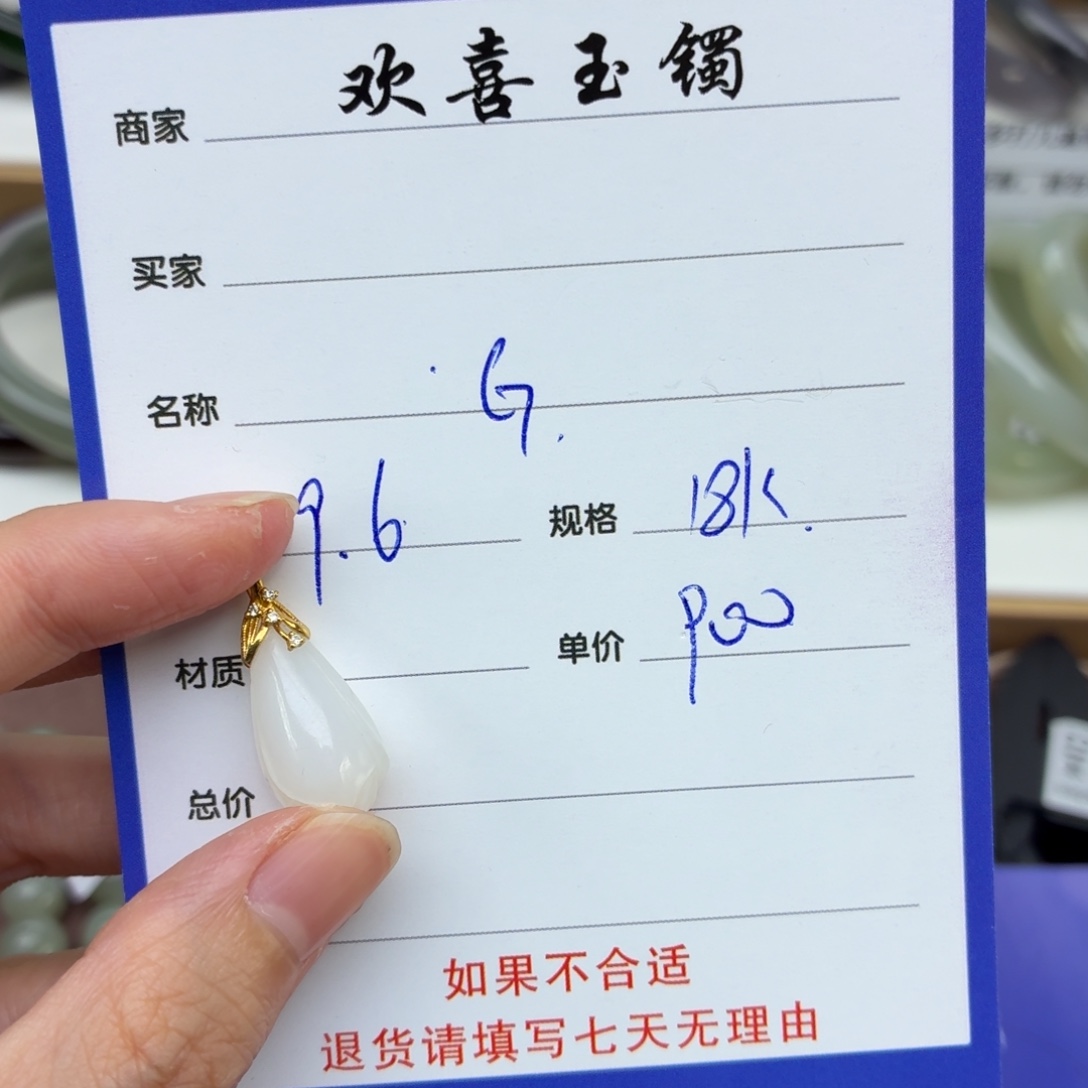 商家 欢喜玉镯
买家
名称 G.
9.6 规格 18K.
材质 单价 P00
总价
如果不合适
退货请填写七天无理由